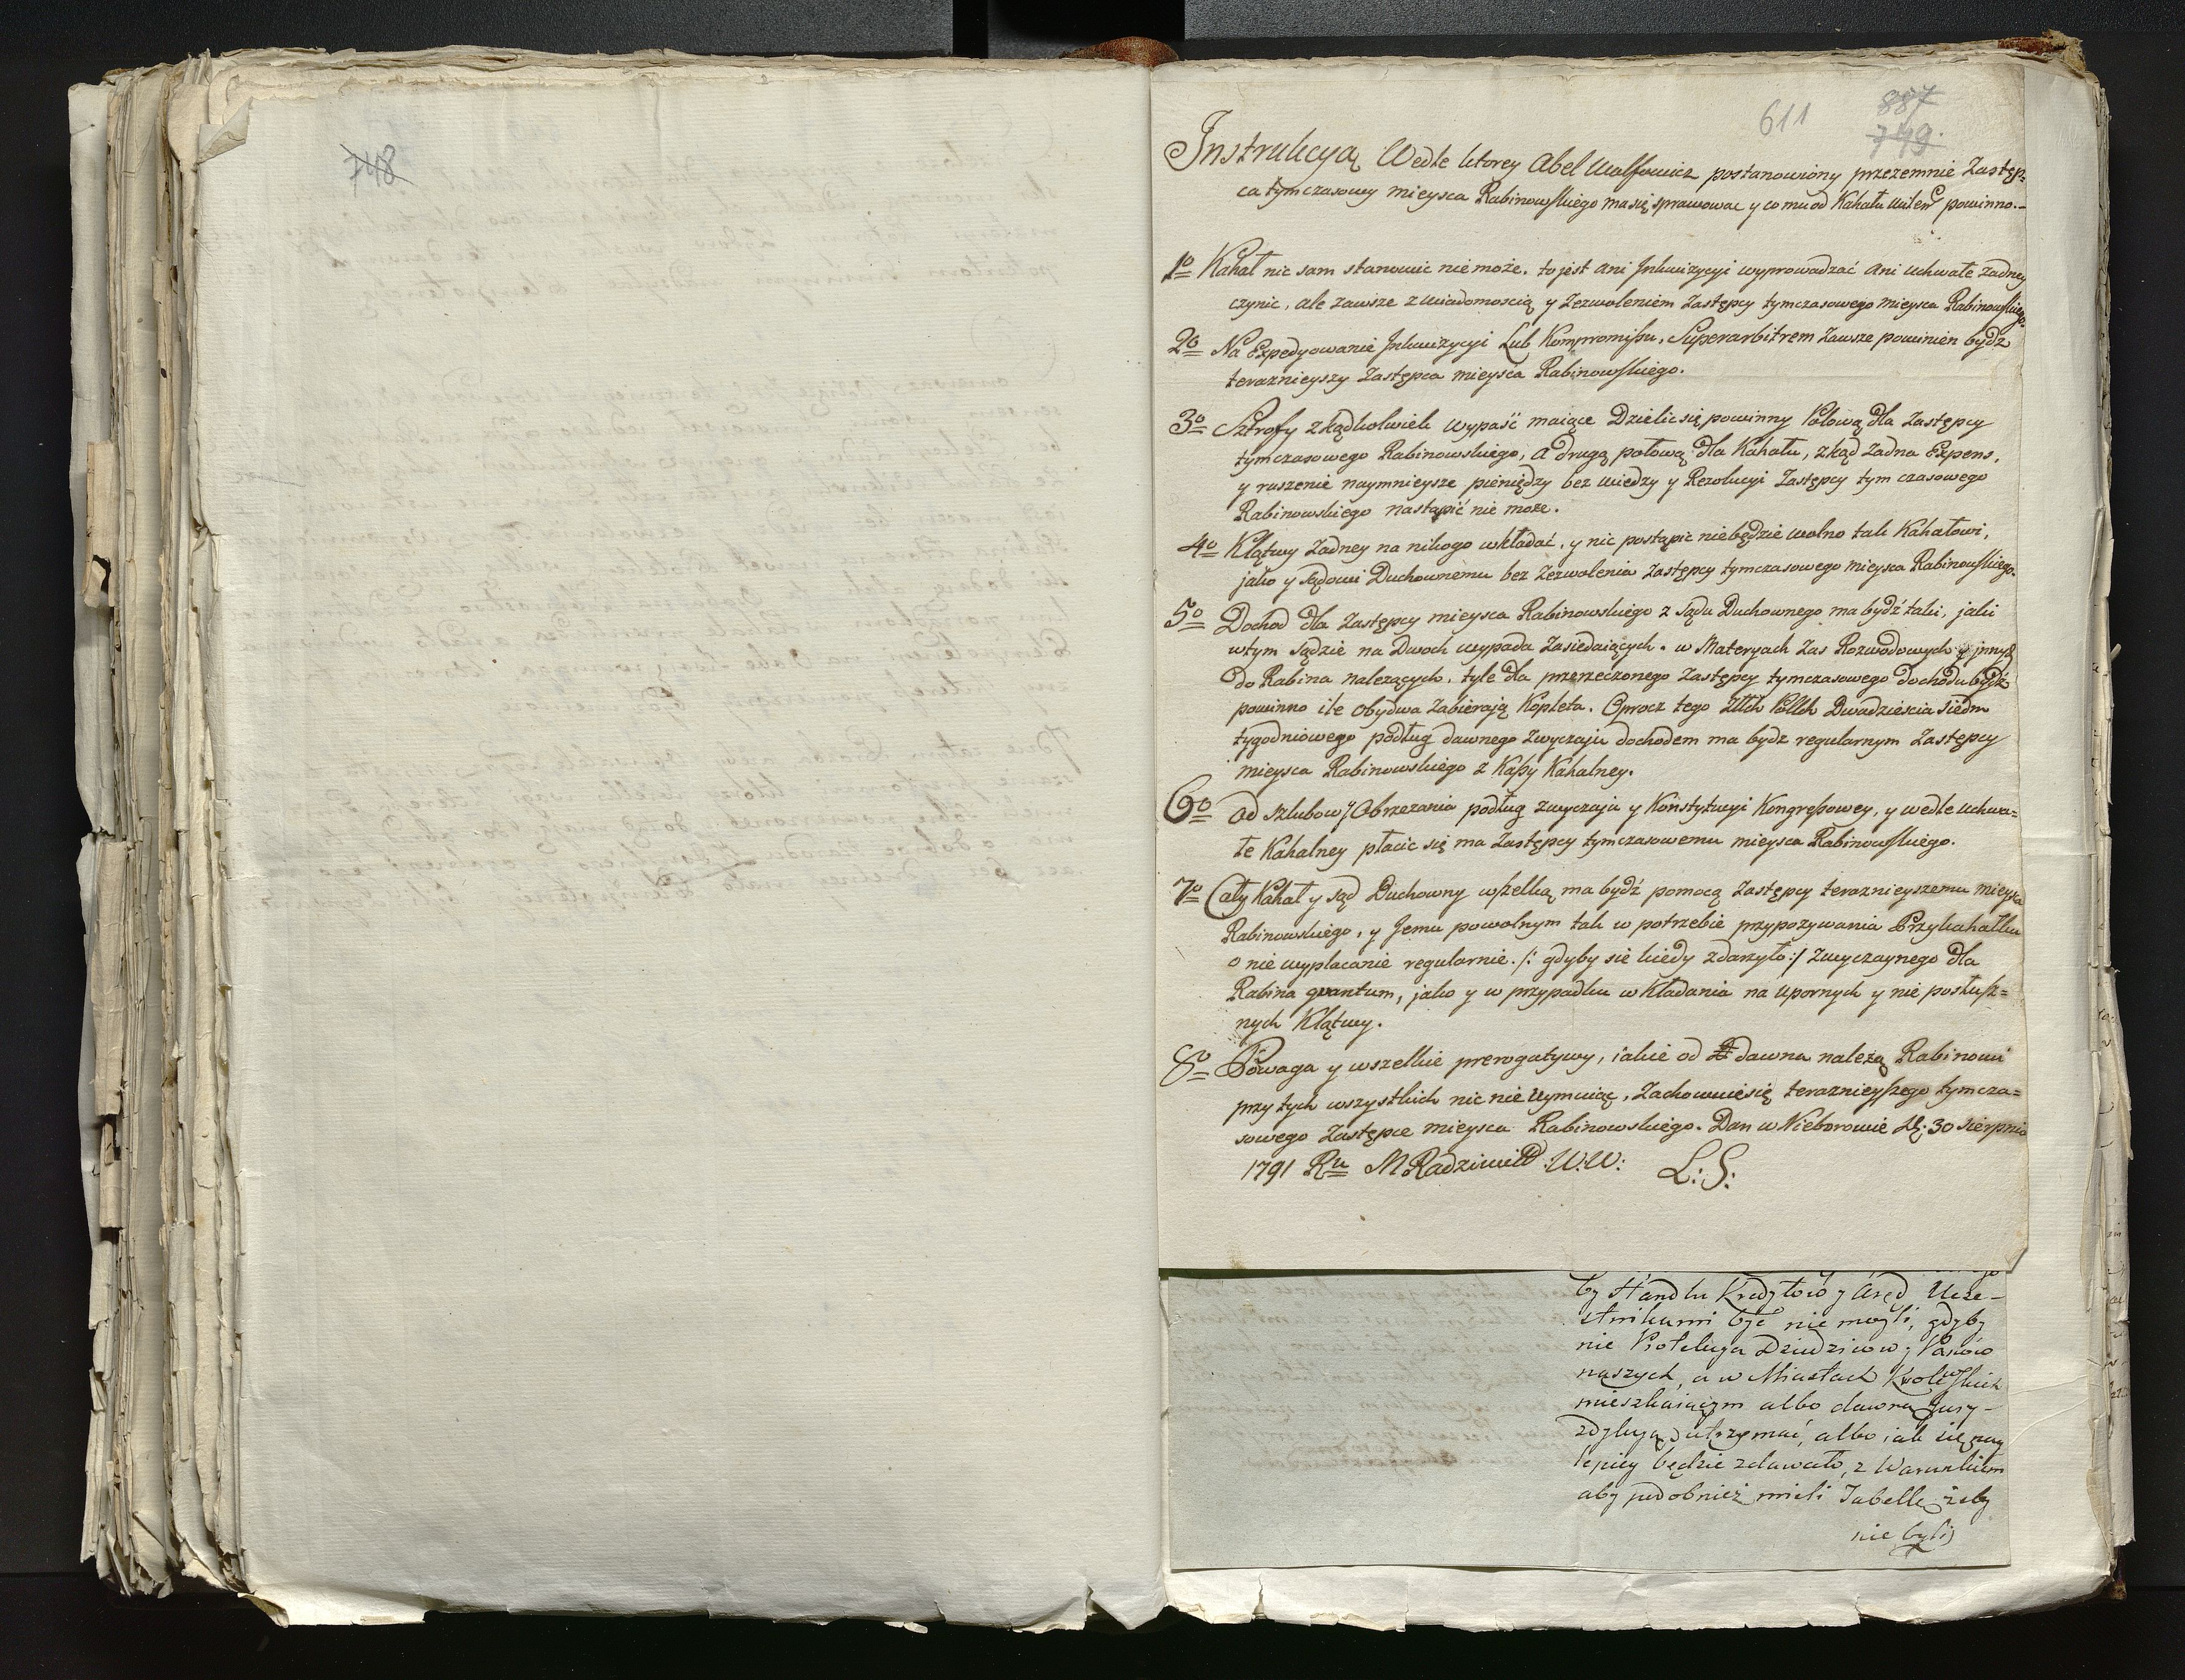 748
611
887
749
Instrukcyą Wedle ktorey Abel Wolfowicz postanowiony przezemnie Zastęp=
ca tymczasowy mieysca Rabinowskiego ma się sprawować y co mu od Kahału powinno.-
1o Kahał nic sam stanowic nie może. to jest ani Inkwizycyi wyprowadzać ani uchwałe żadney
czynic, ale zawsze z wiadomoscią y zezwoleniem Zastępcy tymczasowego mieysca Rabinowskiego.
2o Na Expedyowanie Inkwizycyi Lub Kompromisu, Superarbitrem zawsze powinien bydz
teraznieyszy Zastępca mieysca Rabinowskiego.
3o Sztrofy zkądkolwiek wypaść maiące Dzielic się powinny Połową dla Zastępcy
tymczasowego Rabinowskiego, a drugą połową dla Kahału, zkąd żadna Expens,
y ruszenie naymnieysze pieniędzy bez wiedzy y Rezolucyi Zastępcy tym czasowego
Rabinowskiego nastąpić nie może.
4o Klątwy żadney na nikogo wkładać, y nic postąpic niebędzie wolno tak Kahałowi,
jako y sądowi Duchownemu bez Zezwolenia Zastępcy tymczasowego mieysca Rabinowskiego.
5o Dochod dla Zastępcy mieysca Rabinowskiego z sądu Duchownego ma bydź taki, jaki
wtym sądzie na Dwoch wypada Zasiedaiących. w Materyach zas Rozwodowych y jnnych
do Rabina nalezących, tyle dla przerzeczonego Zastępcy tymczasowego dochodu bydź
powinno ile obydwa zabierają Kopleta. Oprocz tego Złłch Pollch Dwadziescia siedm
tygodniowego podług dawnego zwyczaju dochodem ma bydz regularnym Zastępcy
mieysca Rabinowskiego z Kassy Kahalney.
6o Od szlubow y Obrzezania podług zwyczaju y Konstytucyi Kongressowey, y wedle uchwa=
łe Kahalney płacic się ma Zastępcy tymczasowemu mieysca Rabinowskiego.
7o Cały Kahał y sąd Duchowny wszelką ma bydź pomocą Zastępcy teraznieyszemu mieysca
Rabinowskiego, y Jemu powolnym tak w potrzebie przypozywania Przykahałku
o nie wypłacanie regularnie /: gdyby sie kiedy zdarzyło :/ zwyczaynego dla
Rabina qvantum, jako y w przypadku wkładania na upornych y nie posłusz=
nych Klątwy.
8o Powaga y wszelkie prerogatywy, iakie od dawna należą Rabinowi
przy tych wszystkich nic nie uymuiąc, Zachowuie się teraznieyszego tymcza=
sowego Zastępce mieysca Rabinowskiego. Dan w Nieborowie D. 30 sierpnia
1791 Ru M Radziwiłł W:W: L:S:
by Handlu Kredytow y Aręd Ucze-
stnikami być nie mogli, gdyby
nie Protekcya Dziedzicow y Panów
naszych, a w Miastach Krolewskich
mieszkaiącym albo dawną Jury-
zdykcyą utrzymać, albo iak się nay
lepiey będzie zdawało, z Warunkiem
aby podobnież mieli Tabellę żeby
nie byli